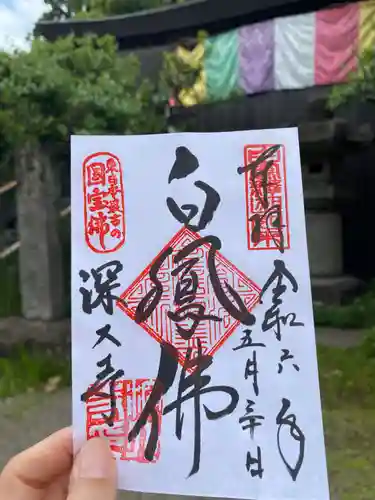 奉拝
令和六年
五月三十日
白鳳佛
東日本最古の
国宝仏
深大寺